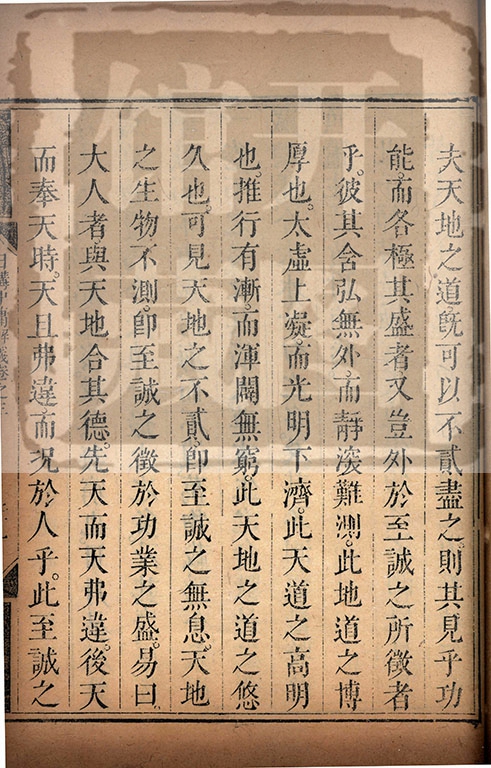 夫天地之道既可以不貳盡之則其見乎功
能而各極其盛者又豈外於至誠之所徵者
乎彼其含弘無外而靜深難測此地道之博
厚也太虛上凝而光明下濟此天道之高明
也推行有漸而渾闢無窮此天地之道之悠
久也可見天地之不貳即至誠之無息天地
之生物不測即至誠之徵於功業之盛易曰
大人者與天地合其德先天而天弗違後天
而奉天時天且弗違而況於人乎此至誠之